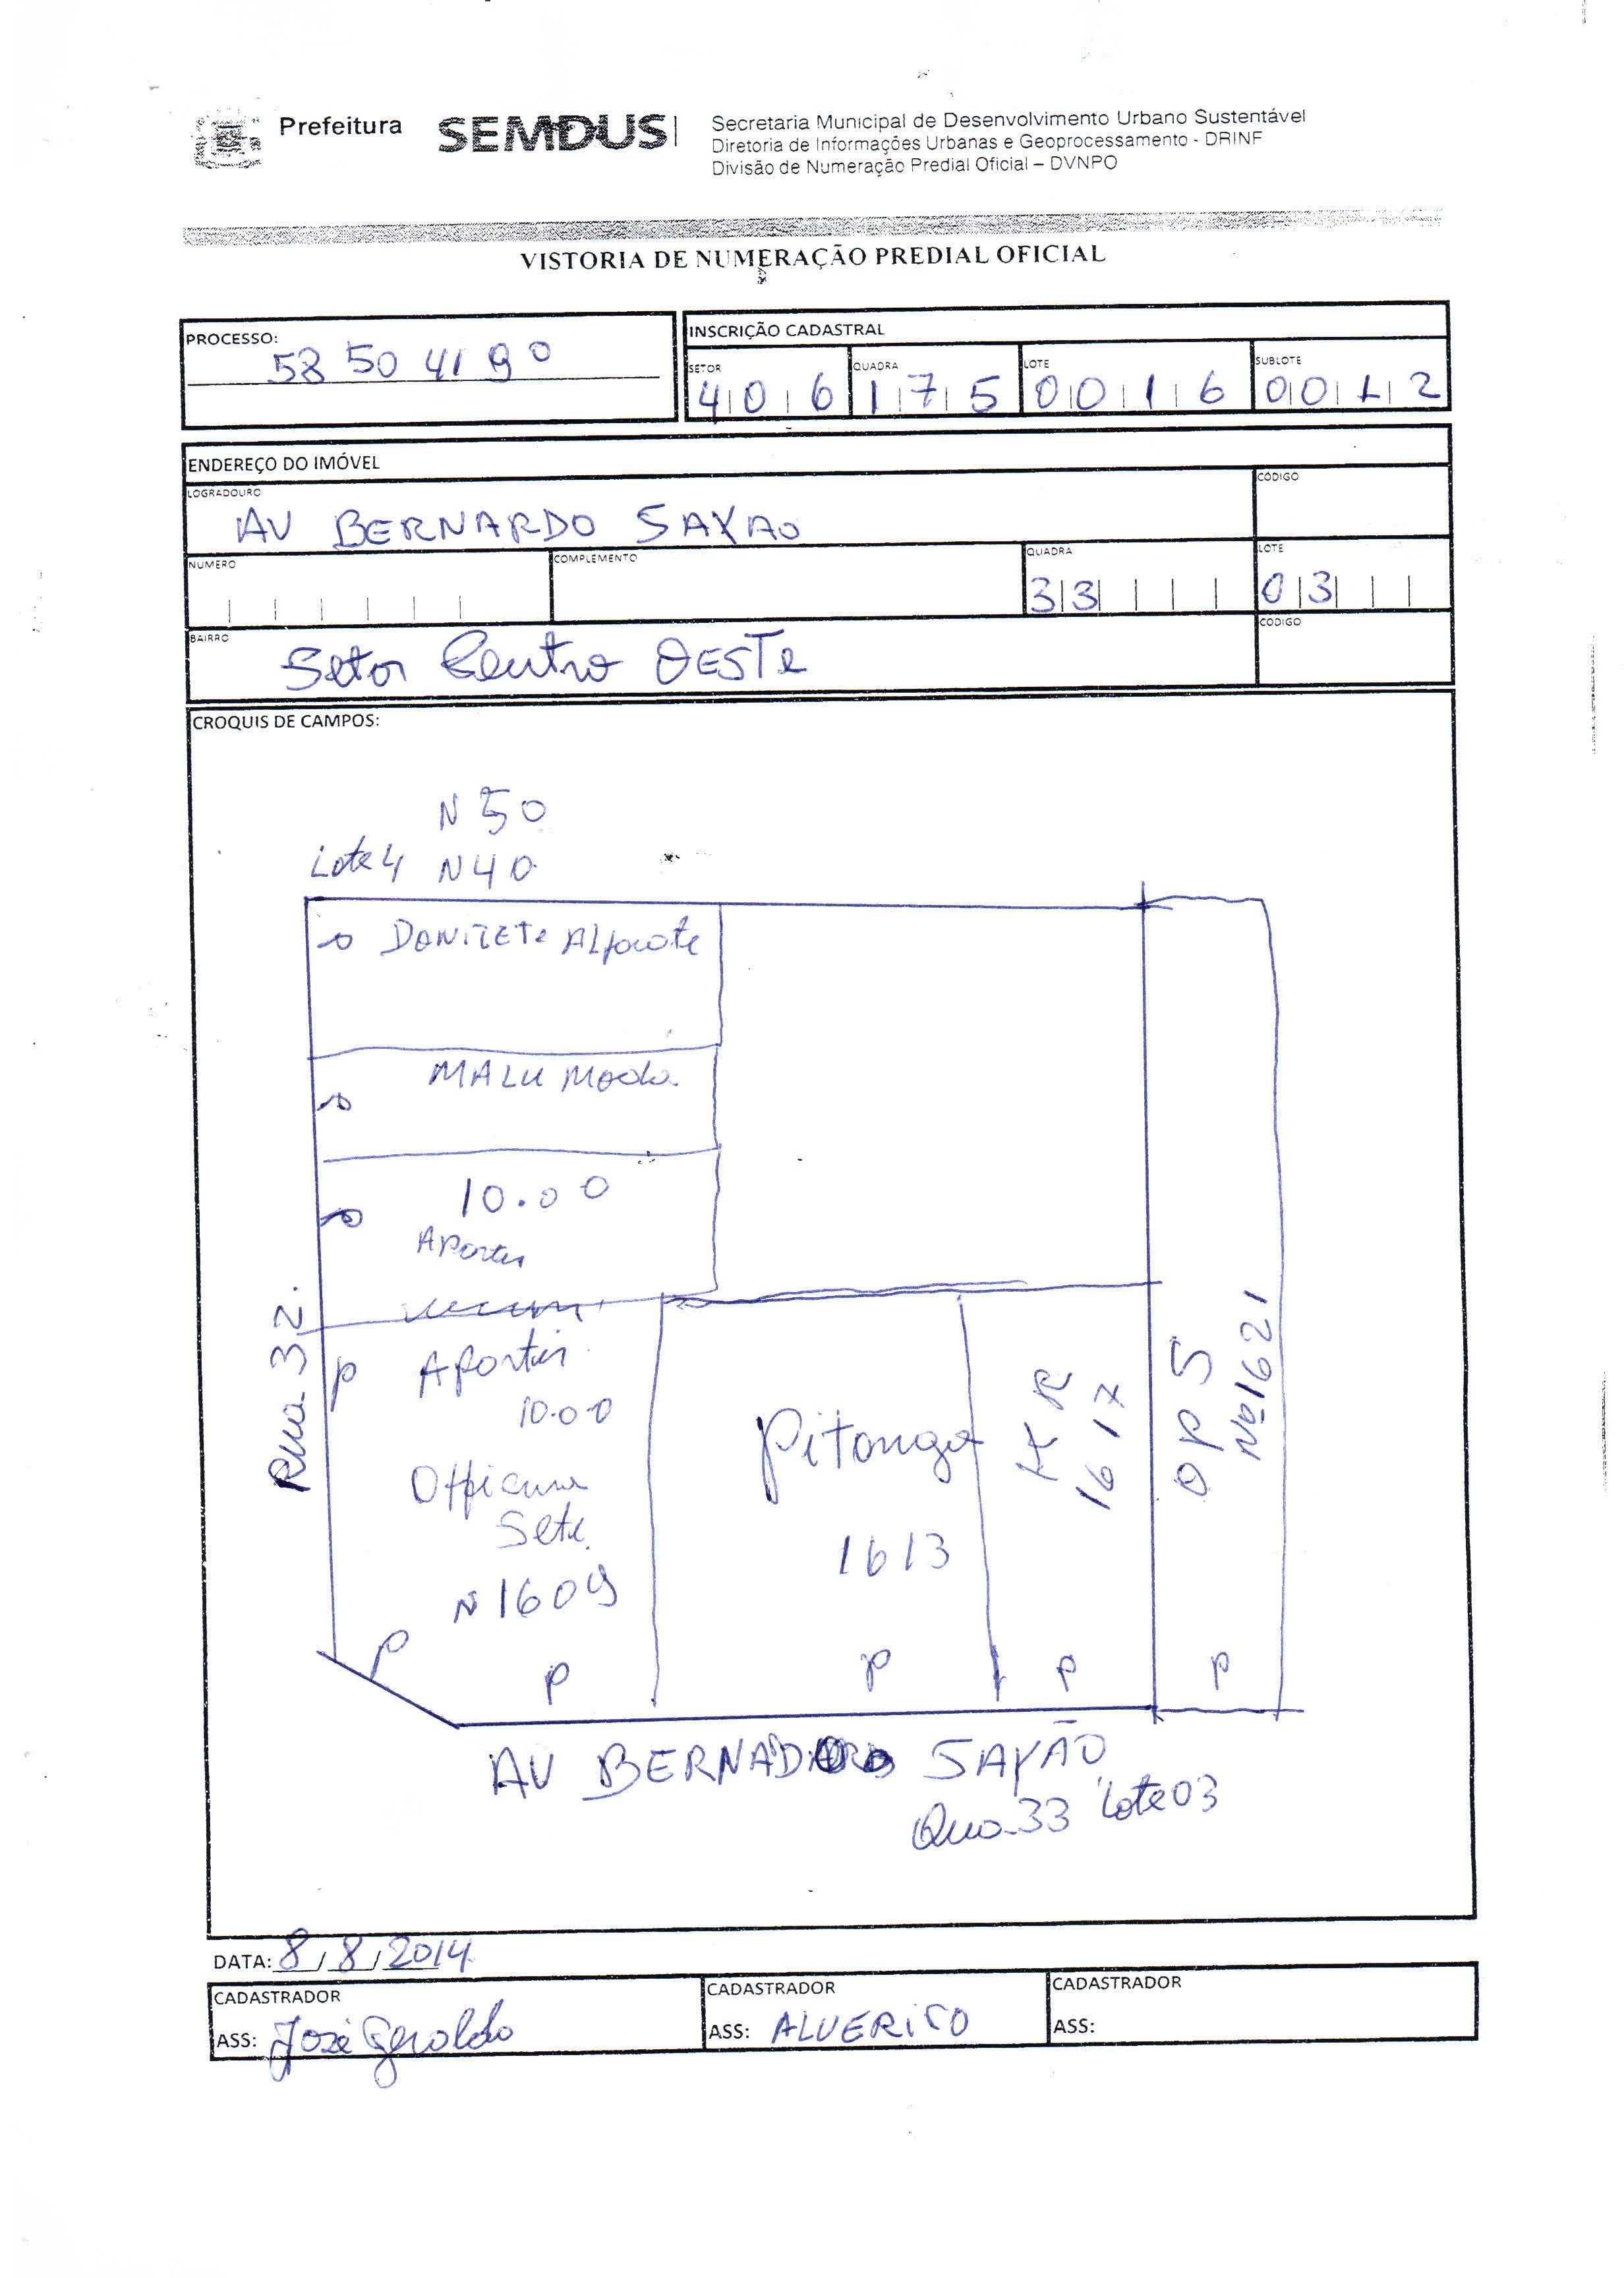 Prefeitura SEMDUS
Secretaria Municipal de Desenvolvimento Urbano Sustentável
Diretoria de Informações Urbanas e Geoprocessamento - DRINF
Divisão de Numeração Predial Oficial – DVNPO
VISTORIA DE NUMERAÇÃO PREDIAL OFICIAL
PROCESSO:
58 50 41 9 0
INSCRIÇÃO CADASTRAL
SETOR QUADRA LOTE SUBLOTE
4 0 6 1 7 5 0 0 1 6 0 0 1 2
ENDEREÇO DO IMÓVEL
LOGRADOURO CÓDIGO
AV BERNARDO SAYAO
NUMERO COMPLEMENTO QUADRA LOTE
33 03
BAIRRO CODIGO
Setor Centro OESTe
CROQUIS DE CAMPOS:
N 50
Lote 4 N 40
DONIZETe Alfaiate
MALU Moda
10.00
APartir
Rua 32.
P APartir
10.00
Officina
Sete.
N 1609
Pitanga
1613
K R
1617
O P S
Nº 1621
P P P P P
AV BERNADO SAYÃO
Qua 33 Lote 03
DATA: 8 / 8 / 2014
CADASTRADOR CADASTRADOR CADASTRADOR
ASS: José Geraldo ASS: ALVERICO ASS: